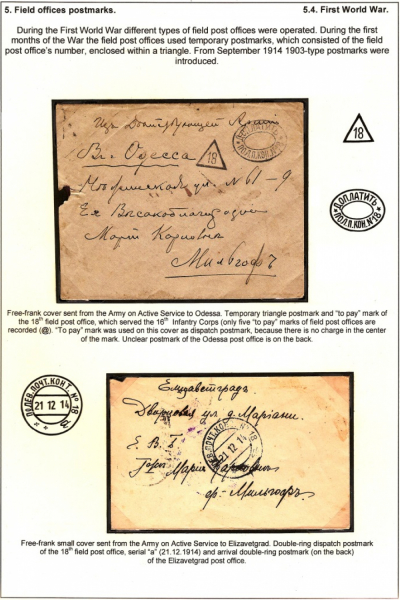 5. Field offices postmarks.
5.4. First World War.
During the First World War different types of field post offices were operated. During the first
months of the War the field post offices used temporary postmarks, which consisted of the field
post office's number, enclosed within a triangle. From September 1914 1903-type postmarks were
introduced.
Изъ Действующей Армiи
Вг. Одесса
18
18
ДОПЛАТИТЬ
ПОЛ.П.КОН.№18
ул. № 61-9
Ея Высокоблагородiю
Марiи Карловне
Мильгофъ
Free-frank cover sent from the Army on Active Service to Odessa. Temporary triangle postmark and "to pay" mark of
the 18th field post office, which served the 16th Infantry Corps (only five "to pay" marks of field post offices are
recorded (@). "To pay" mark was used on this cover as dispatch postmark, because there is no charge in the center
of the mark. Unclear postmark of the Odessa post office is on the back.
ПОЛЕВ. ПОЧТ. КОНТ. № 18
21 12 14
а
Елизаветградъ
Дворцовая ул. д. Марiани.
Е. В. Б.
21 12 14
фр. Мильгофъ.
Free-frank small cover sent from the Army on Active Service to Elizavetgrad. Double-ring dispatch postmark
of the 18th field post office, serial "a" (21.12.1914) and arrival double-ring postmark (on the back)
of the Elizavetgrad post office.